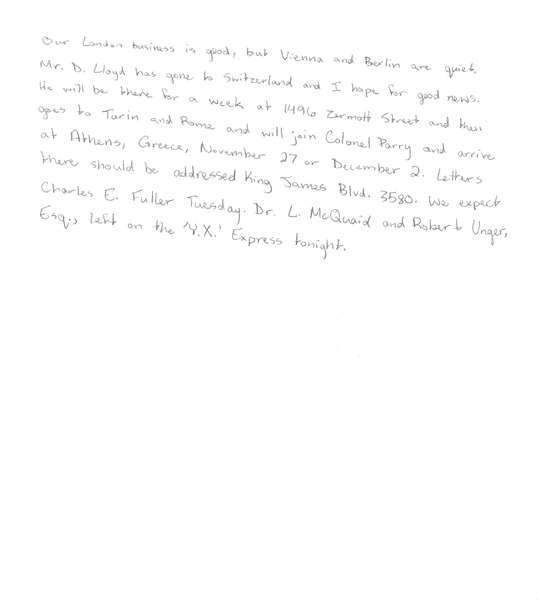 Our London business is good, but Vienna and Berlin are quiet.
Mr. D. Lloyd has gone to Switzerland and I hope for good news.
He will be there for a week at 1496 Zermott Street and then
goes to Turin and Rome and will join Colonel Parry and arrive
at Athens, Greece, November 27 or December 2. Letters
there should be addressed King James Blvd. 3580. We expect
Charles E. Fuller Tuesday. Dr. L. McQuaid and Robert Unger,
Esq., left on the 'Y.X.' Express tonight.